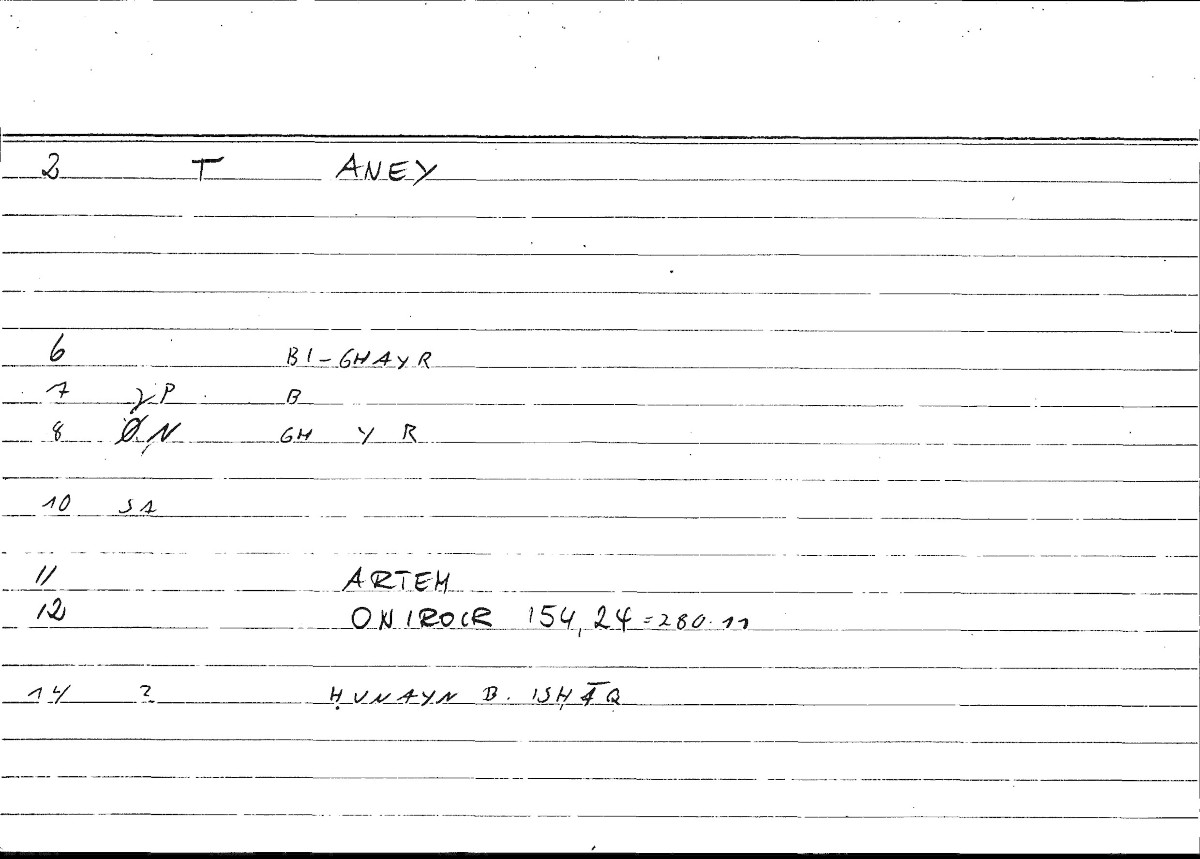 2 T ANEY
6 BI-GHAYR
7 γP B
8 ØN GH Y R
10 SA
11 ARTEM
12 ONIROCR 154,24=280.11
14 ? ḤUNAYN B. ISḤĀQ